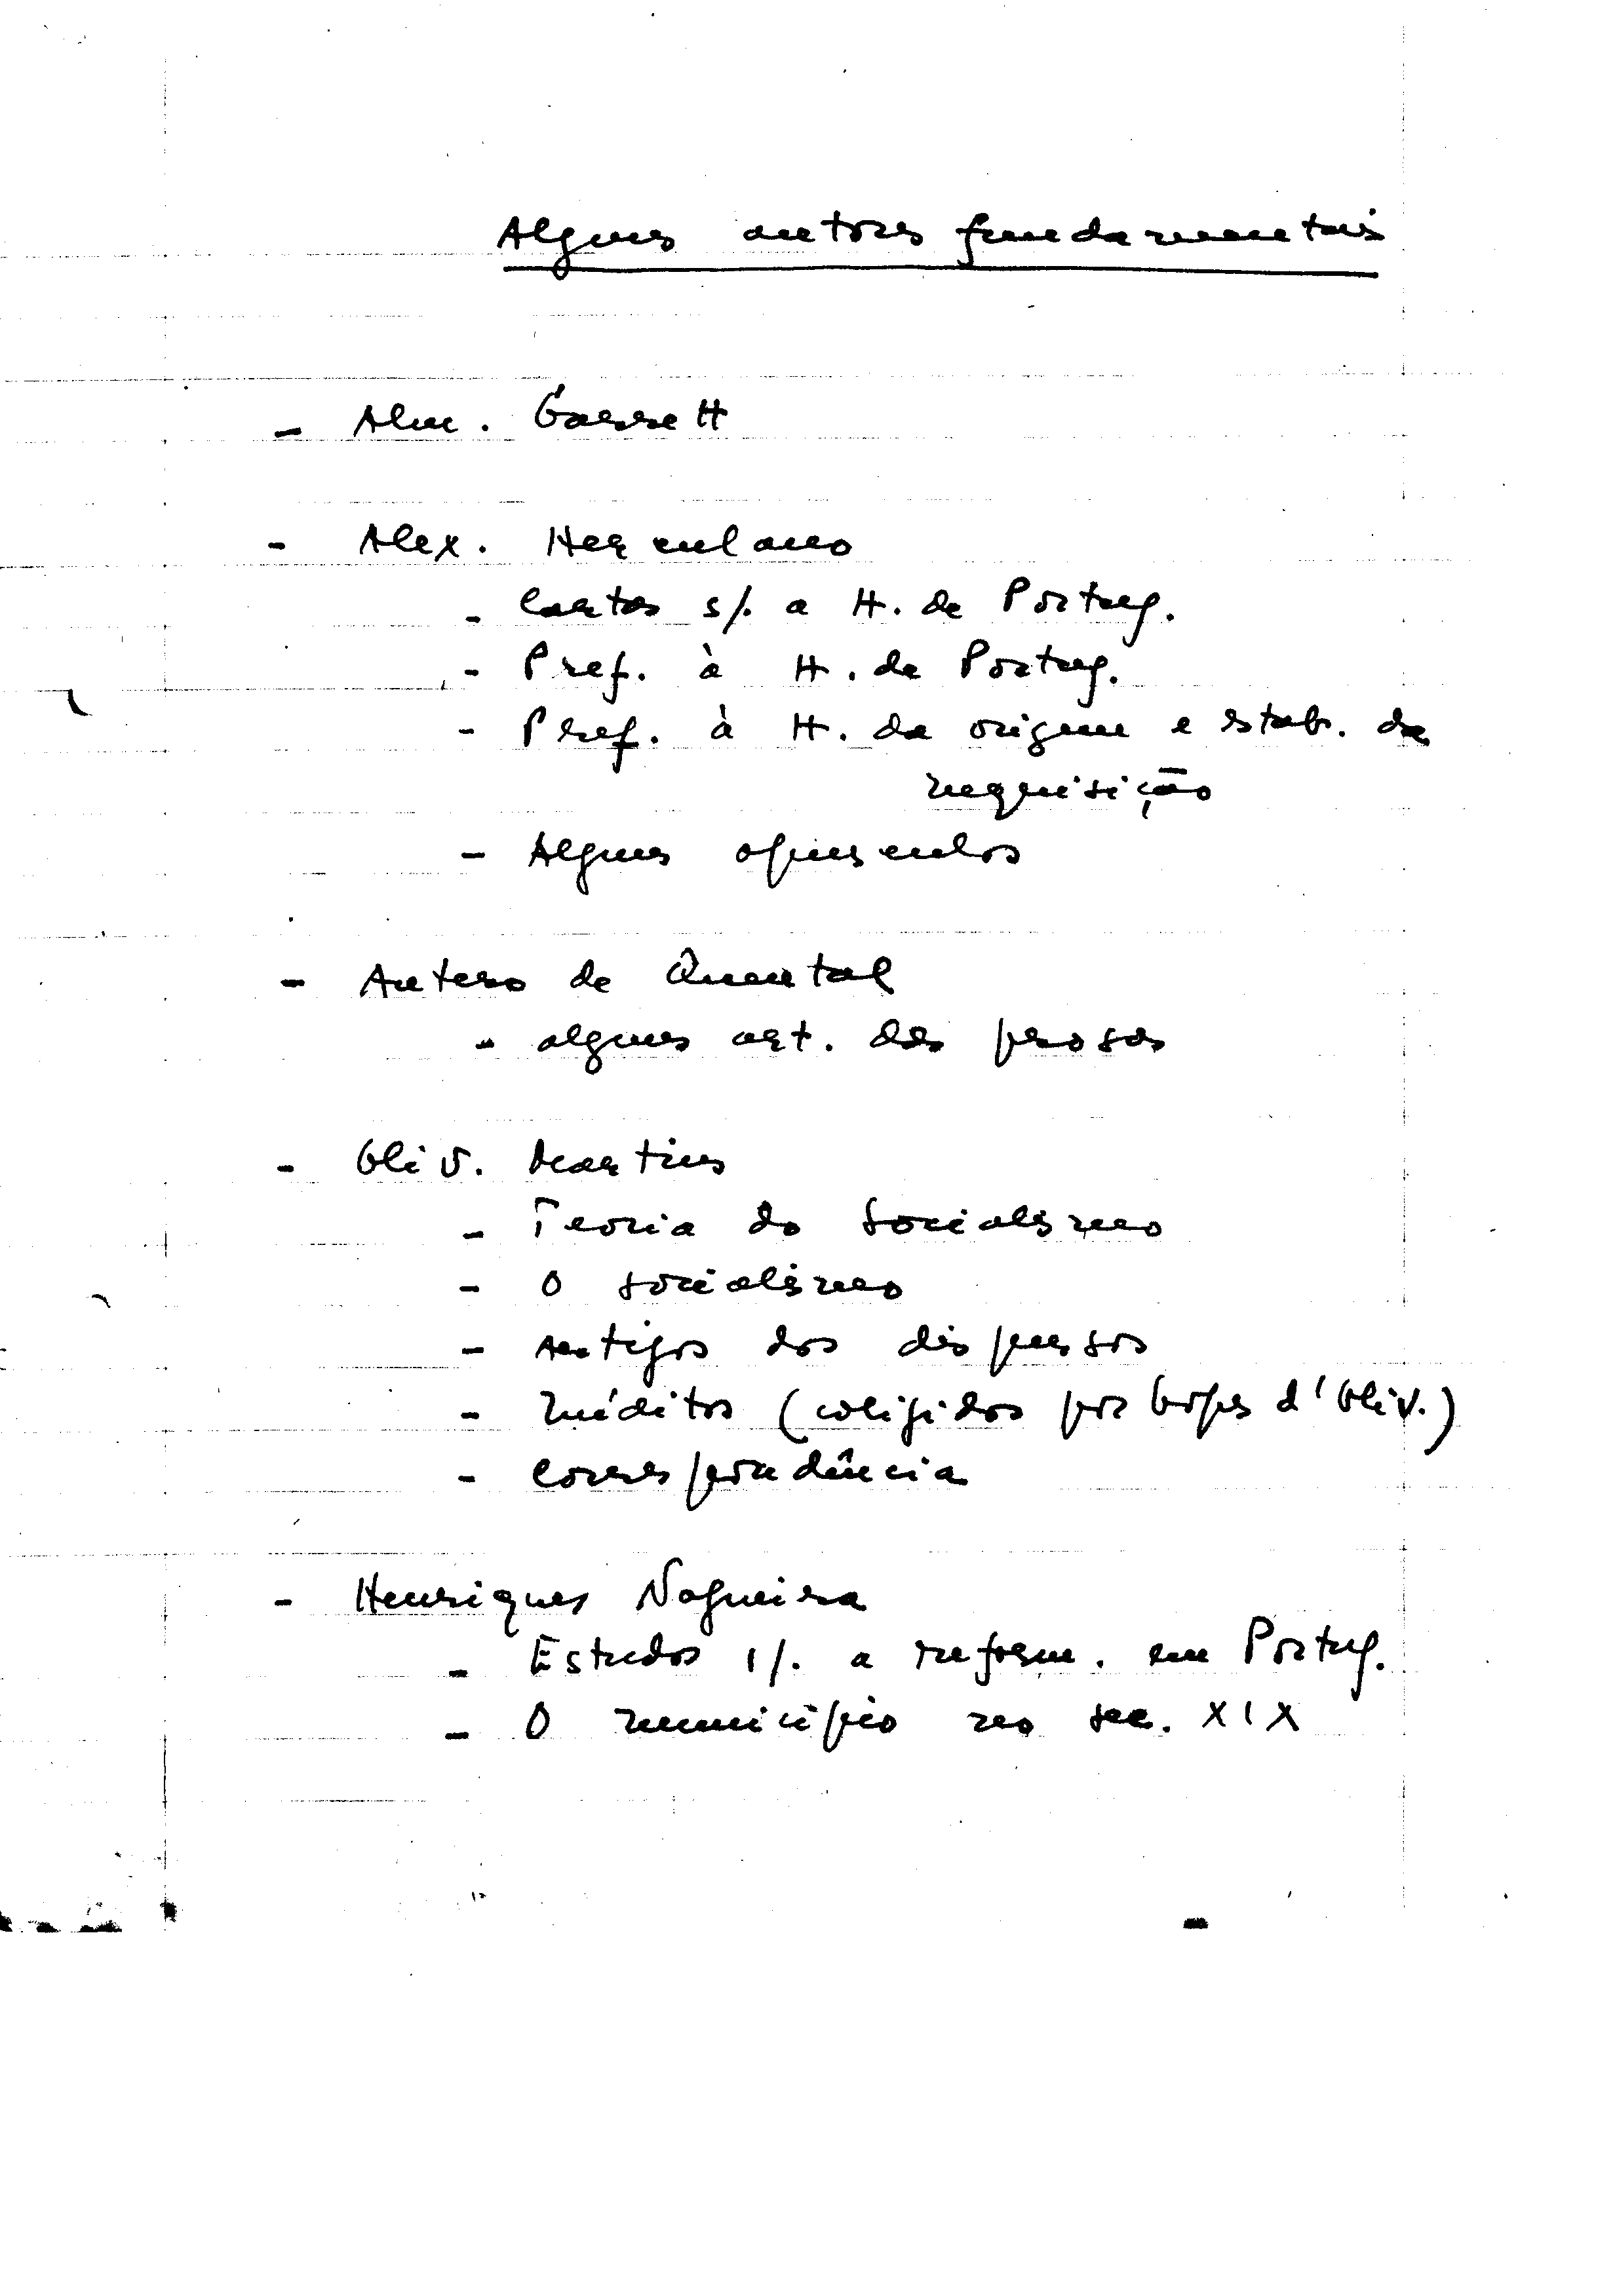 Alguns autores fundamentais
- Alm. Garrett
- Alex. Herculano
- Cartas s/. a H. de Portug.
- Pref. à H. de Portug.
- Pref. à H. da origem e estab. da
inquisição
- Alguns opusculos
- Antero de Quental
- alguns art. das prosas
- Oliv. Martins
- Teoria do Socialismo
- O socialismo
- Artigos dos dispersos
- Inéditos (coligidos por Lopes d'Oliv.)
- Correspondência
- Henriques Nogueira
- Estudos s/. a reform. em Portug.
- O município no sec. XIX